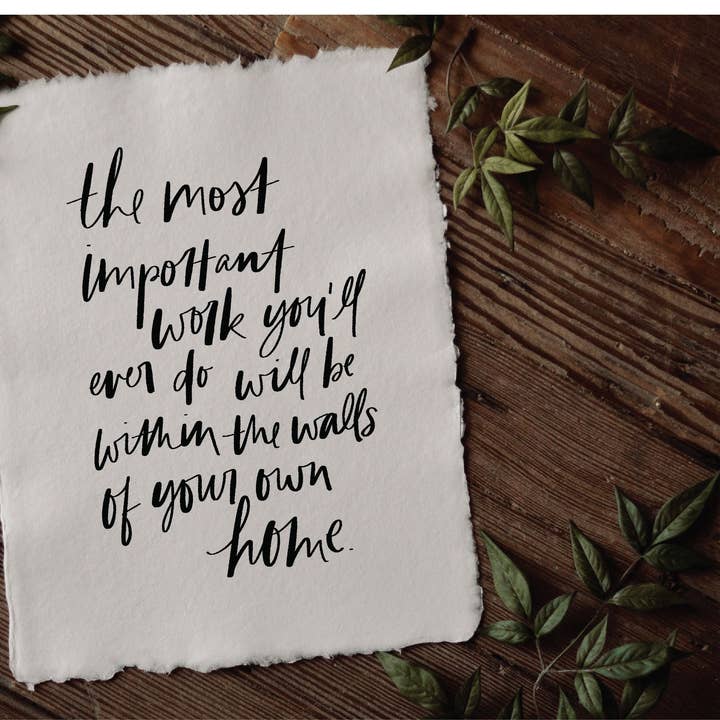 the most
important
work you'll
ever do will be
within the walls
of your own
home.